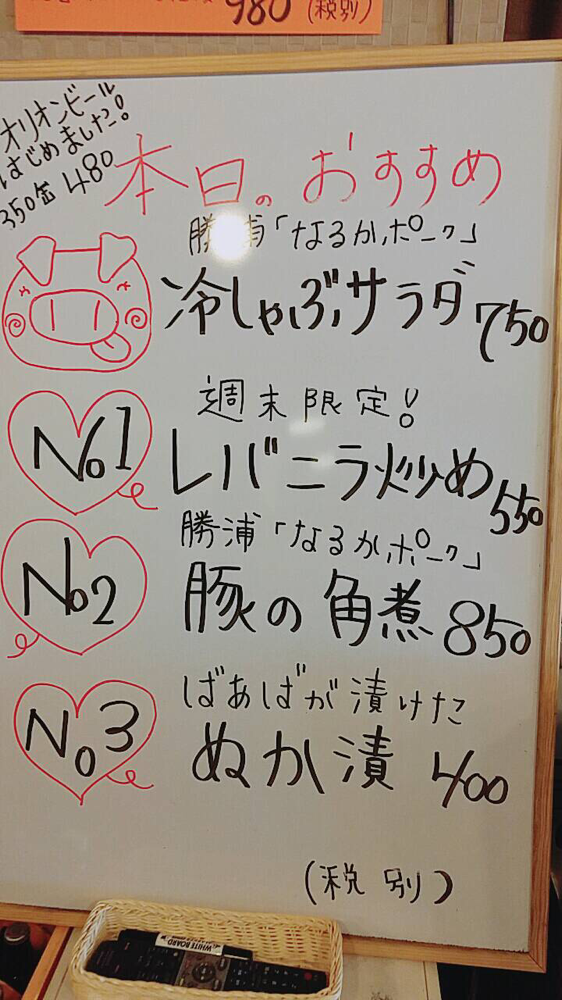 980 (税別)
オリオンビール
はじめました!
350缶 480
本日のおすすめ
勝浦「なるかポーク」
冷しゃぶサラダ 750
週末限定!
No1 レバニラ炒め 550
勝浦「なるかポーク」
No2 豚の角煮 850
ばあばが漬けた
No3 ぬか漬 400
(税別)
WHITE BOARD